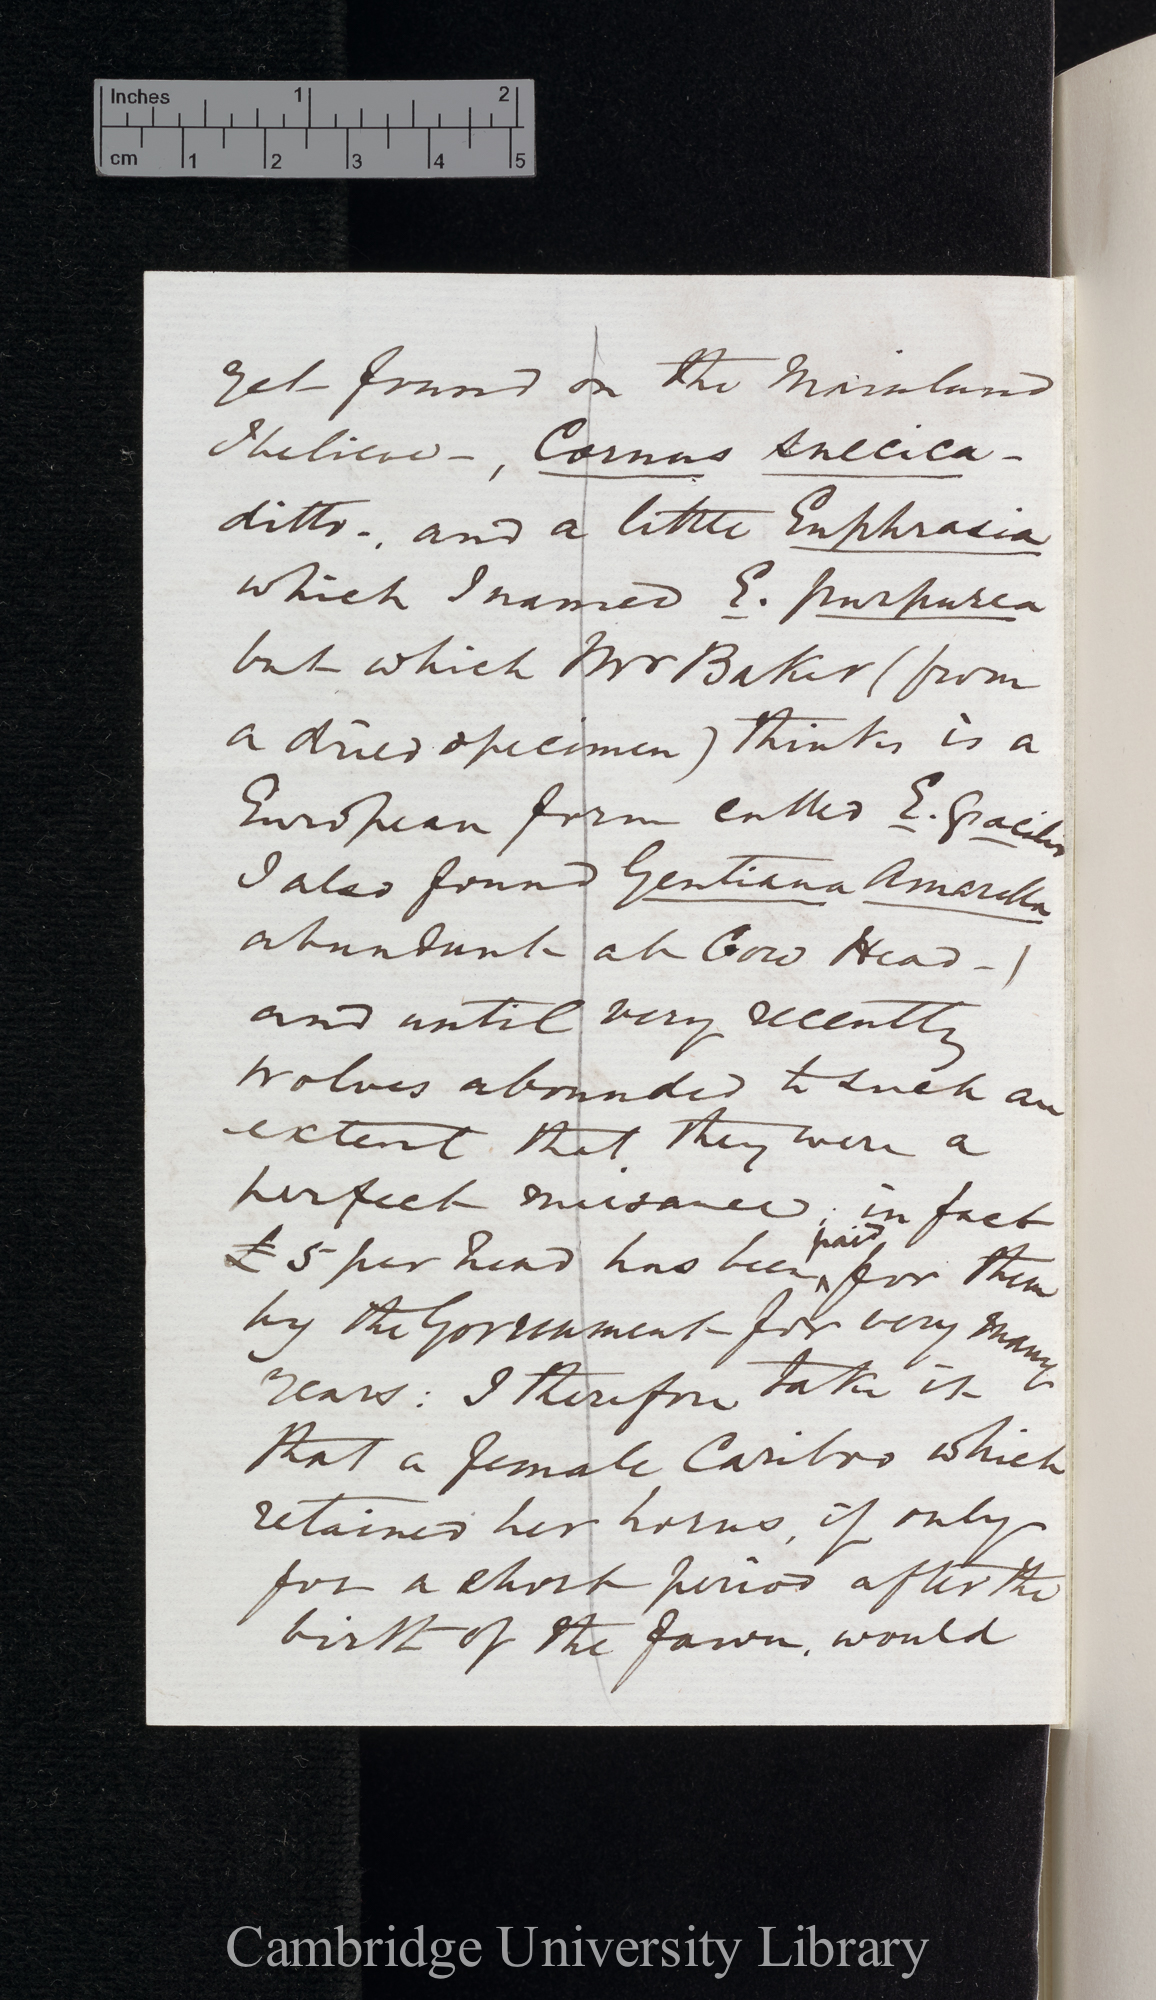 Inches 1 2
cm 1 2 3 4 5
yet found on the Mainland
I believe -, Cornus suecica -
ditto -, and a little Euphrasia
which I named E. purpurea
but which Mr Baker (from
a dried specimen) thinks is a
European form called E. gracilis
I also found Gentiana Amarella
abundant at Cow Head -)
and until very recently
wolves abounded to such an
extent that they were a
perfect nuisance; in fact
£5 per head has been paid for them
by the Government for very many
years: I therefore take it
that a female Caribou which
retained her horns, if only
for a short period after the
birth of the fawn, would
Cambridge University Library